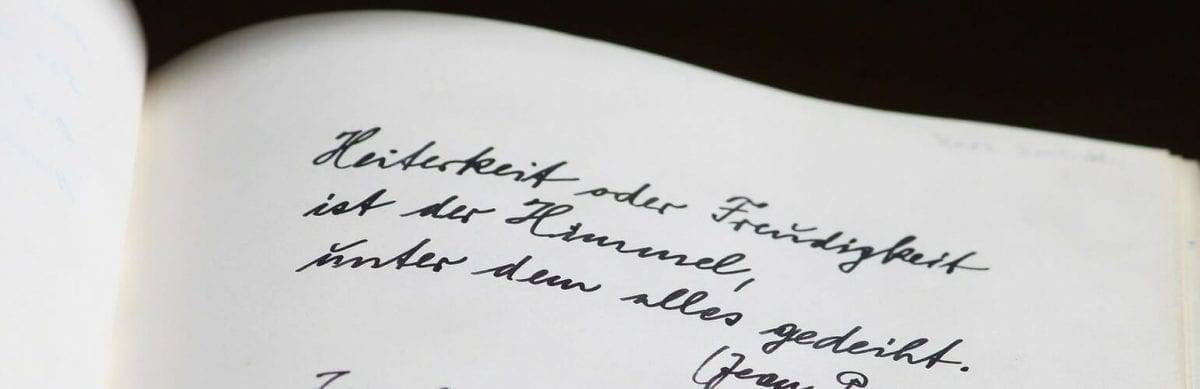 Heiterkeit oder Freudigkeit
ist der Himmel,
unter dem alles gedeiht.
(Jean